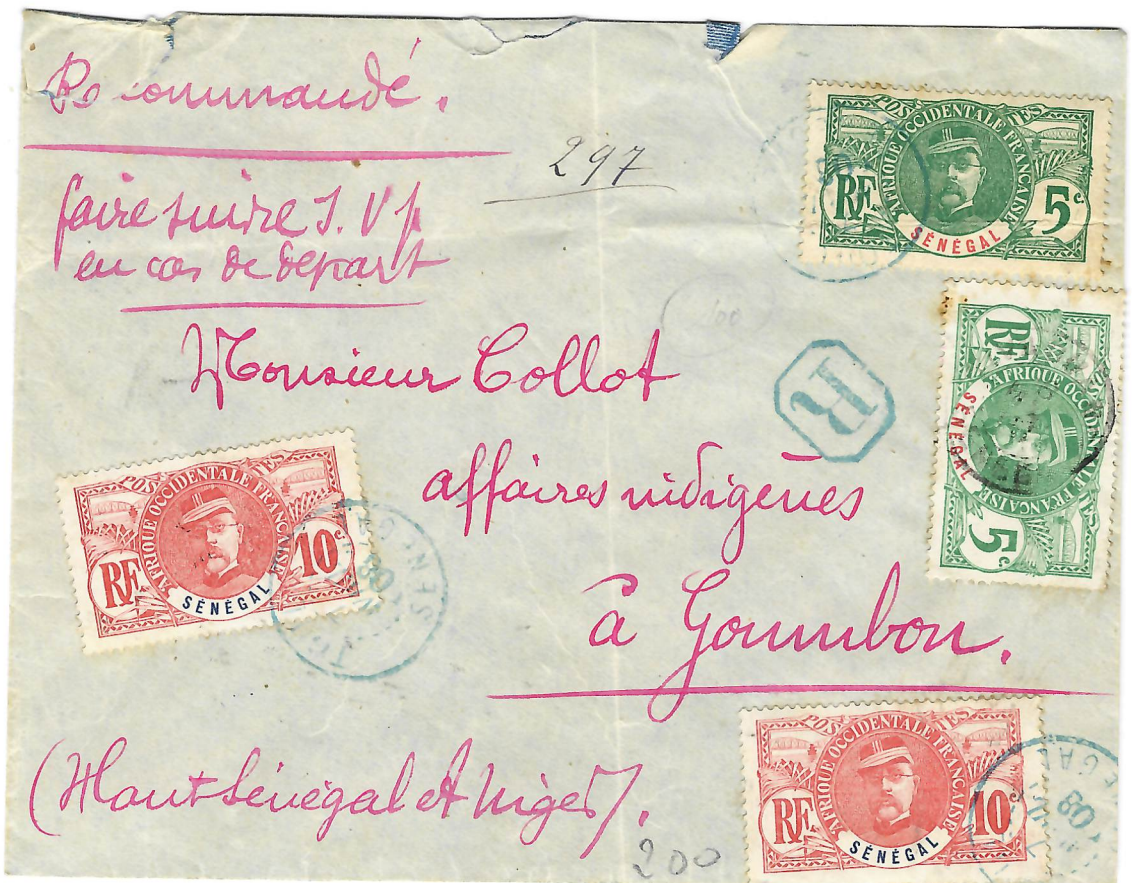 Recommandé.
297
faire suivre S. V p
en cas de départ
Monsieur Collot
affaires indigènes
à Goumbou.
(Haut Sénégal et Niger).
200
R
POSTES
AFRIQUE OCCIDENTALE FRANÇAISE
RF
5c.
SÉNÉGAL
POSTES
AFRIQUE OCCIDENTALE FRANÇAISE
RF
5c.
SÉNÉGAL
POSTES
AFRIQUE OCCIDENTALE FRANÇAISE
RF
10c.
SÉNÉGAL
SENEGAL
09
POSTES
AFRIQUE OCCIDENTALE FRANÇAISE
RF
10c.
SÉNÉGAL
09